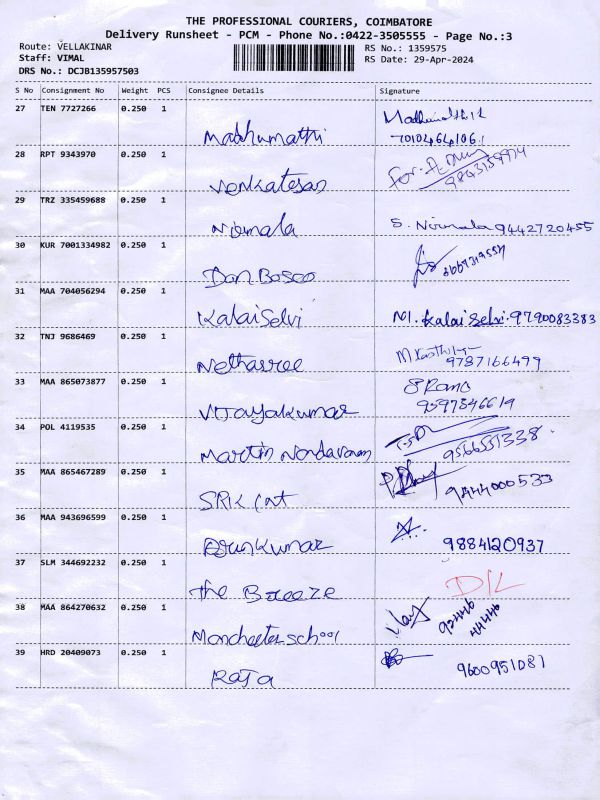 THE PROFESSIONAL COURIERS, COIMBATORE
Delivery Runsheet - PCM - Phone No.:0422-3505555 - Page No.:3
Route: VELLAKINAR
RS No.: 1359575
Staff: VIMAL
RS Date: 29-Apr-2024
DRS No.: DCJB135957503
S No Consignment No Weight PCS Consignee Details Signature
27 TEN 7727266 0.250 1
Madhumathi
28 RPT 9343970 0.250 1
Venkatesan
29 TRZ 335459688 0.250 1
Nirmala S. Nirmala 9442720455
30 KUR 7001334982 0.250 1
Don Bosco
31 MAA 704056294 0.250 1
Kalaiselvi M. Kalaiselvi. 9790083383
32 TNJ 9686469 0.250 1
Nethasree 9787166499
33 MAA 865073877 0.250 1
Vijayakumar 9597346619
34 POL 4119535 0.250 1
Martin 9566551338
35 MAA 865467289 0.250 1
9444000533
36 MAA 943696599 0.250 1
Arunkumar 9884120937
37 SLM 344692232 0.250 1
The Breeze D/L
38 MAA 864270632 0.250 1
Manchester school 92446 44446
39 HRD 20409073 0.250 1
Raja 9600951081